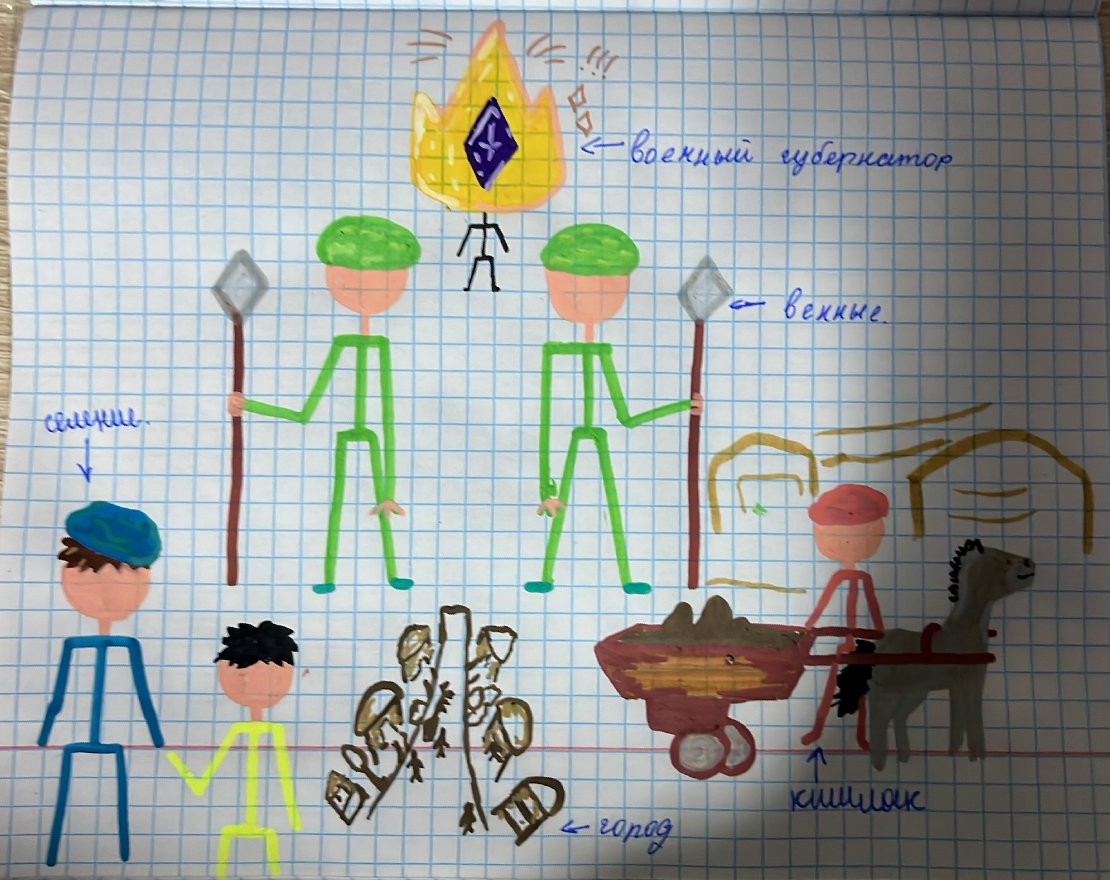 !!!
военный губернатор
венные.
селение.
кишлак
город